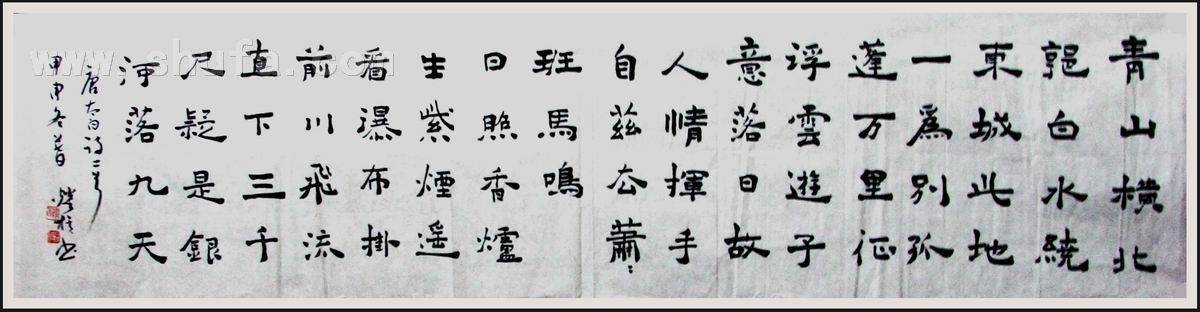 青山橫北
郭白水繞
東城此地
一爲別孤
蓬万里征
浮雲遊子
意落日故
人情揮手
自茲去蕭〻
班馬鳴
日照香爐
生紫煙遥
看瀑布掛
前川飛流
直下三千
尺疑是銀
河落九天
唐太白詩二首
甲申冬
www.shufa.com